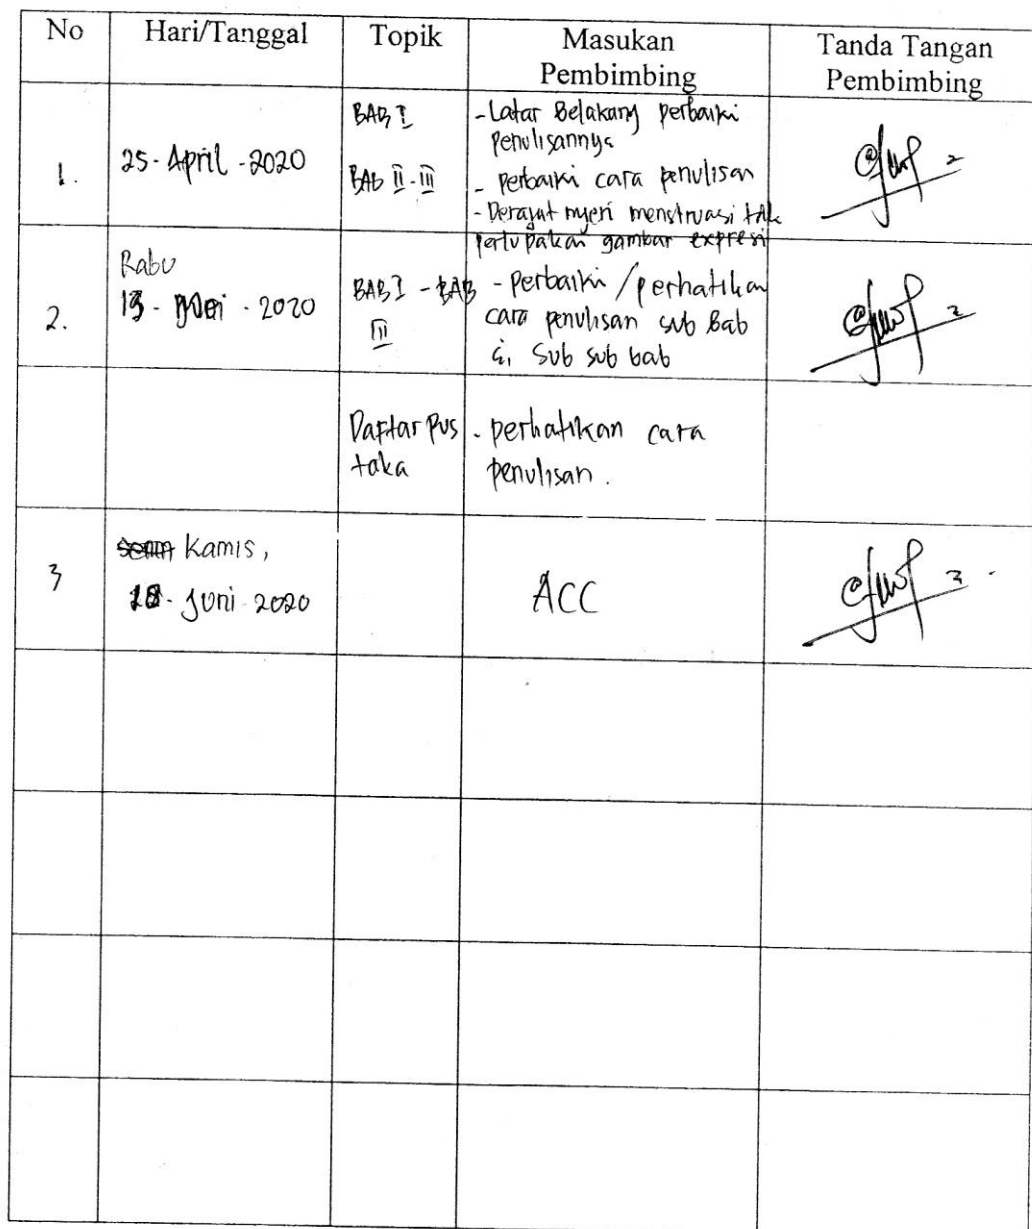 No Hari/Tanggal Topik Masukan Pembimbing Tanda Tangan Pembimbing
1. 25-April-2020
BAB I
- Latar Belakang perbaiki
penulisannya
BAb II-III
- perbaiki cara penulisan
- Derajat nyeri menstruasi tdk
perlu pakai gambar expresi
2. Rabu
13 - Mei - 2020
BAB I - BAB
III
- Perbaiki/perhatikan
cara penulisan sub Bab
& Sub sub bab
Daftar Pus
taka
- perhatikan cara
penulisan.
3 Kamis,
18 - Juni - 2020
ACC